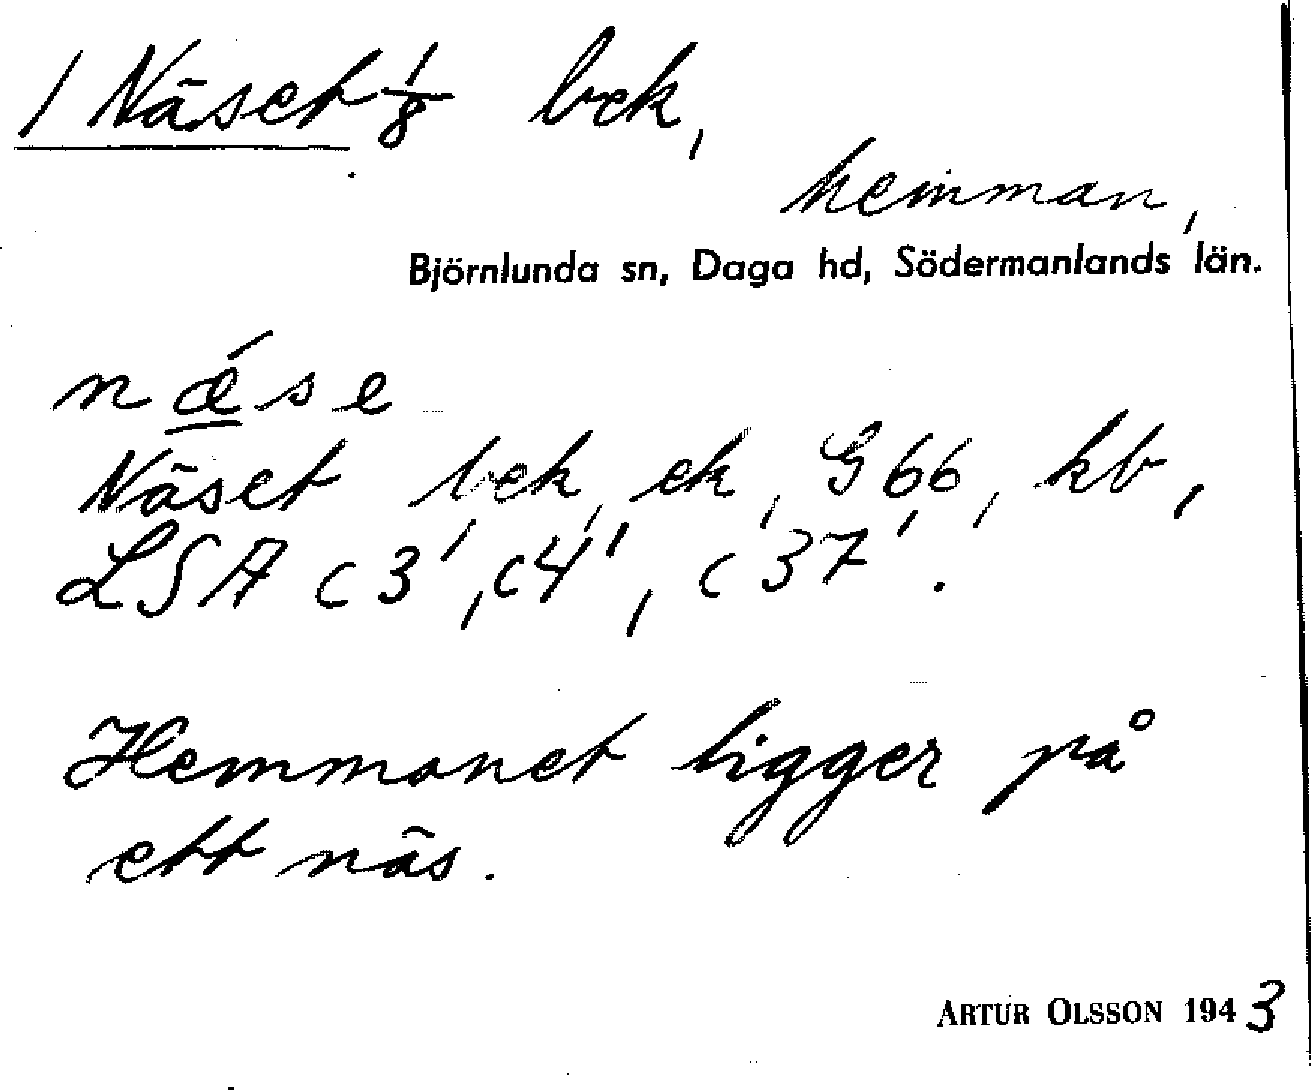 1 Näset 1/8 bek,
hemman,
Björnlunda sn, Daga hd, Södermanlands län.
nǽse
Näset bek, ek, G66, kb,
LSA c3', c4', c37'.
Hemmanet ligger på
ett näs.
ARTUR OLSSON 1943